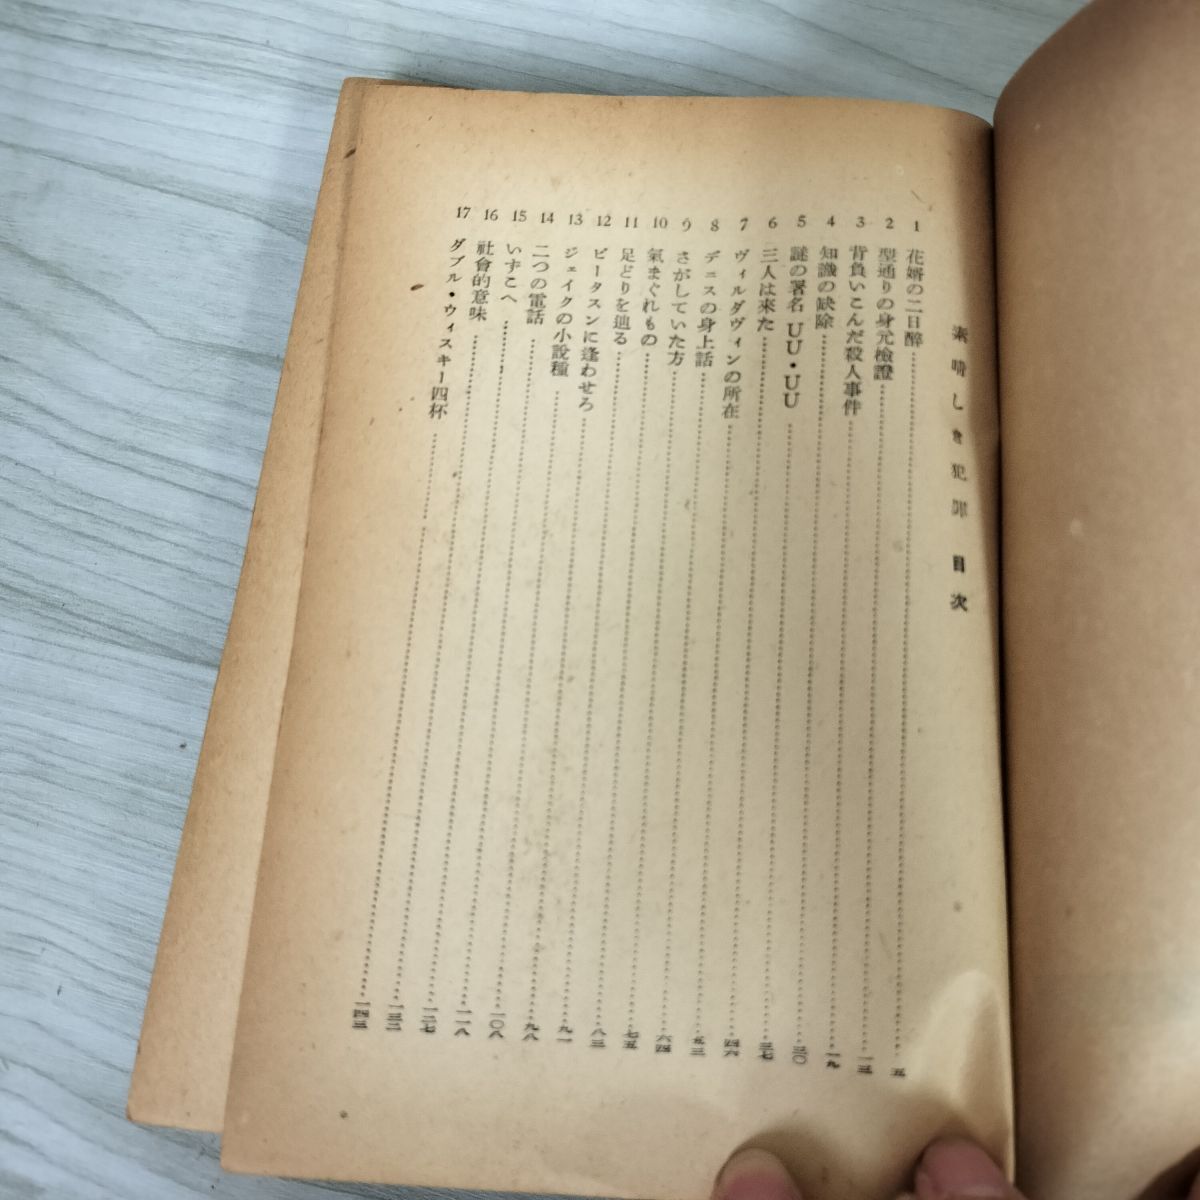 素晴しき犯罪 目次
1 花婿の二日醉……五
2 型通りの身元檢證……一三
3 背負いこんだ殺人事件……一九
4 知識の缺除……三〇
5 謎の署名 UU・UU……三七
6 三人は來た……四六
7 ヴィルダヴィンの所在……五三
8 デニスの身上話……六四
9 さがしていた方……七五
10 氣まぐれもの……八三
11 足どりを辿る……九一
12 ピータスンに逢わせろ……九八
13 ジェイクの小說種……一〇八
14 二つの電話……一一八
15 いずこへ……一二七
16 社會的意味……一三二
17 ダブル・ウィスキー四杯……一四三